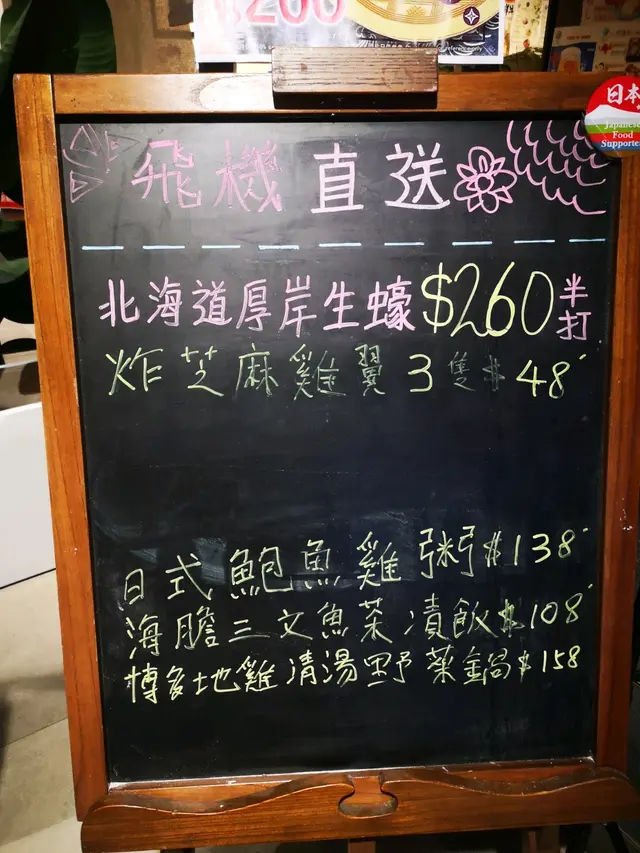 $200
日本
Japanese
Food
Supporter
飛機直送
北海道厚岸生蠔$260半打
炸芝麻雞翼3隻$48
日式鮑魚雞粥$138
海膽三文魚菜漬飯$108
博多地雞清湯野菜鍋$158